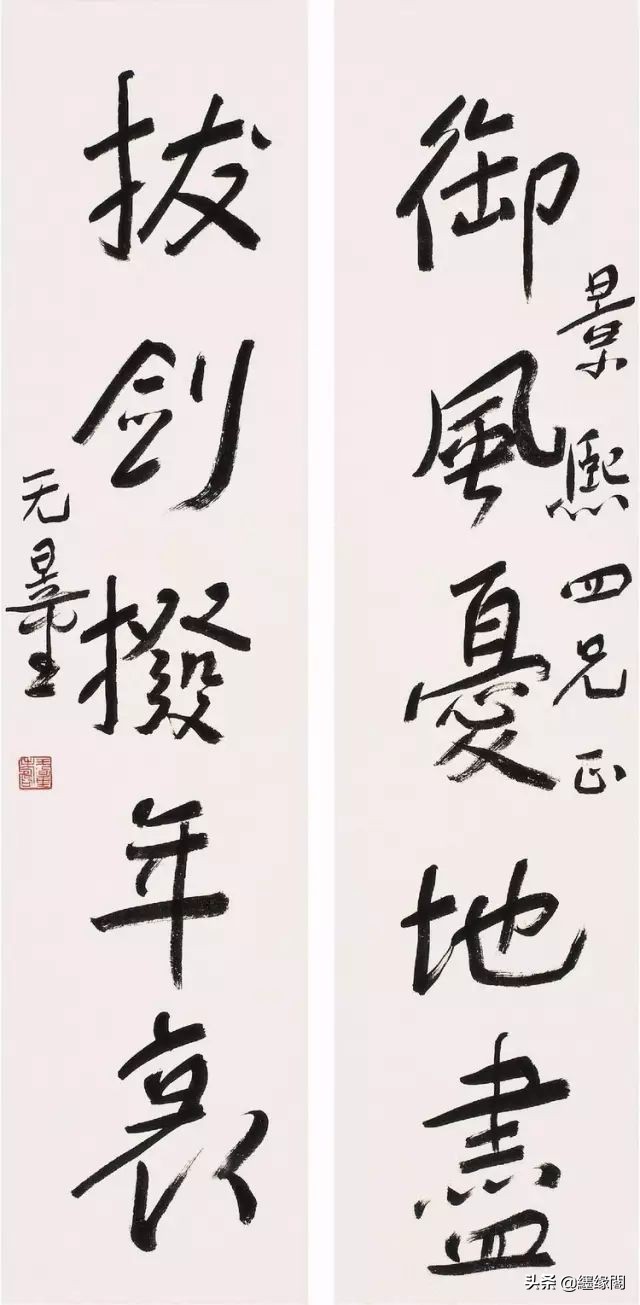 景熙四兄正
御風憂地盡
拔劍撥年衰
无量
头条 @纆缘閣